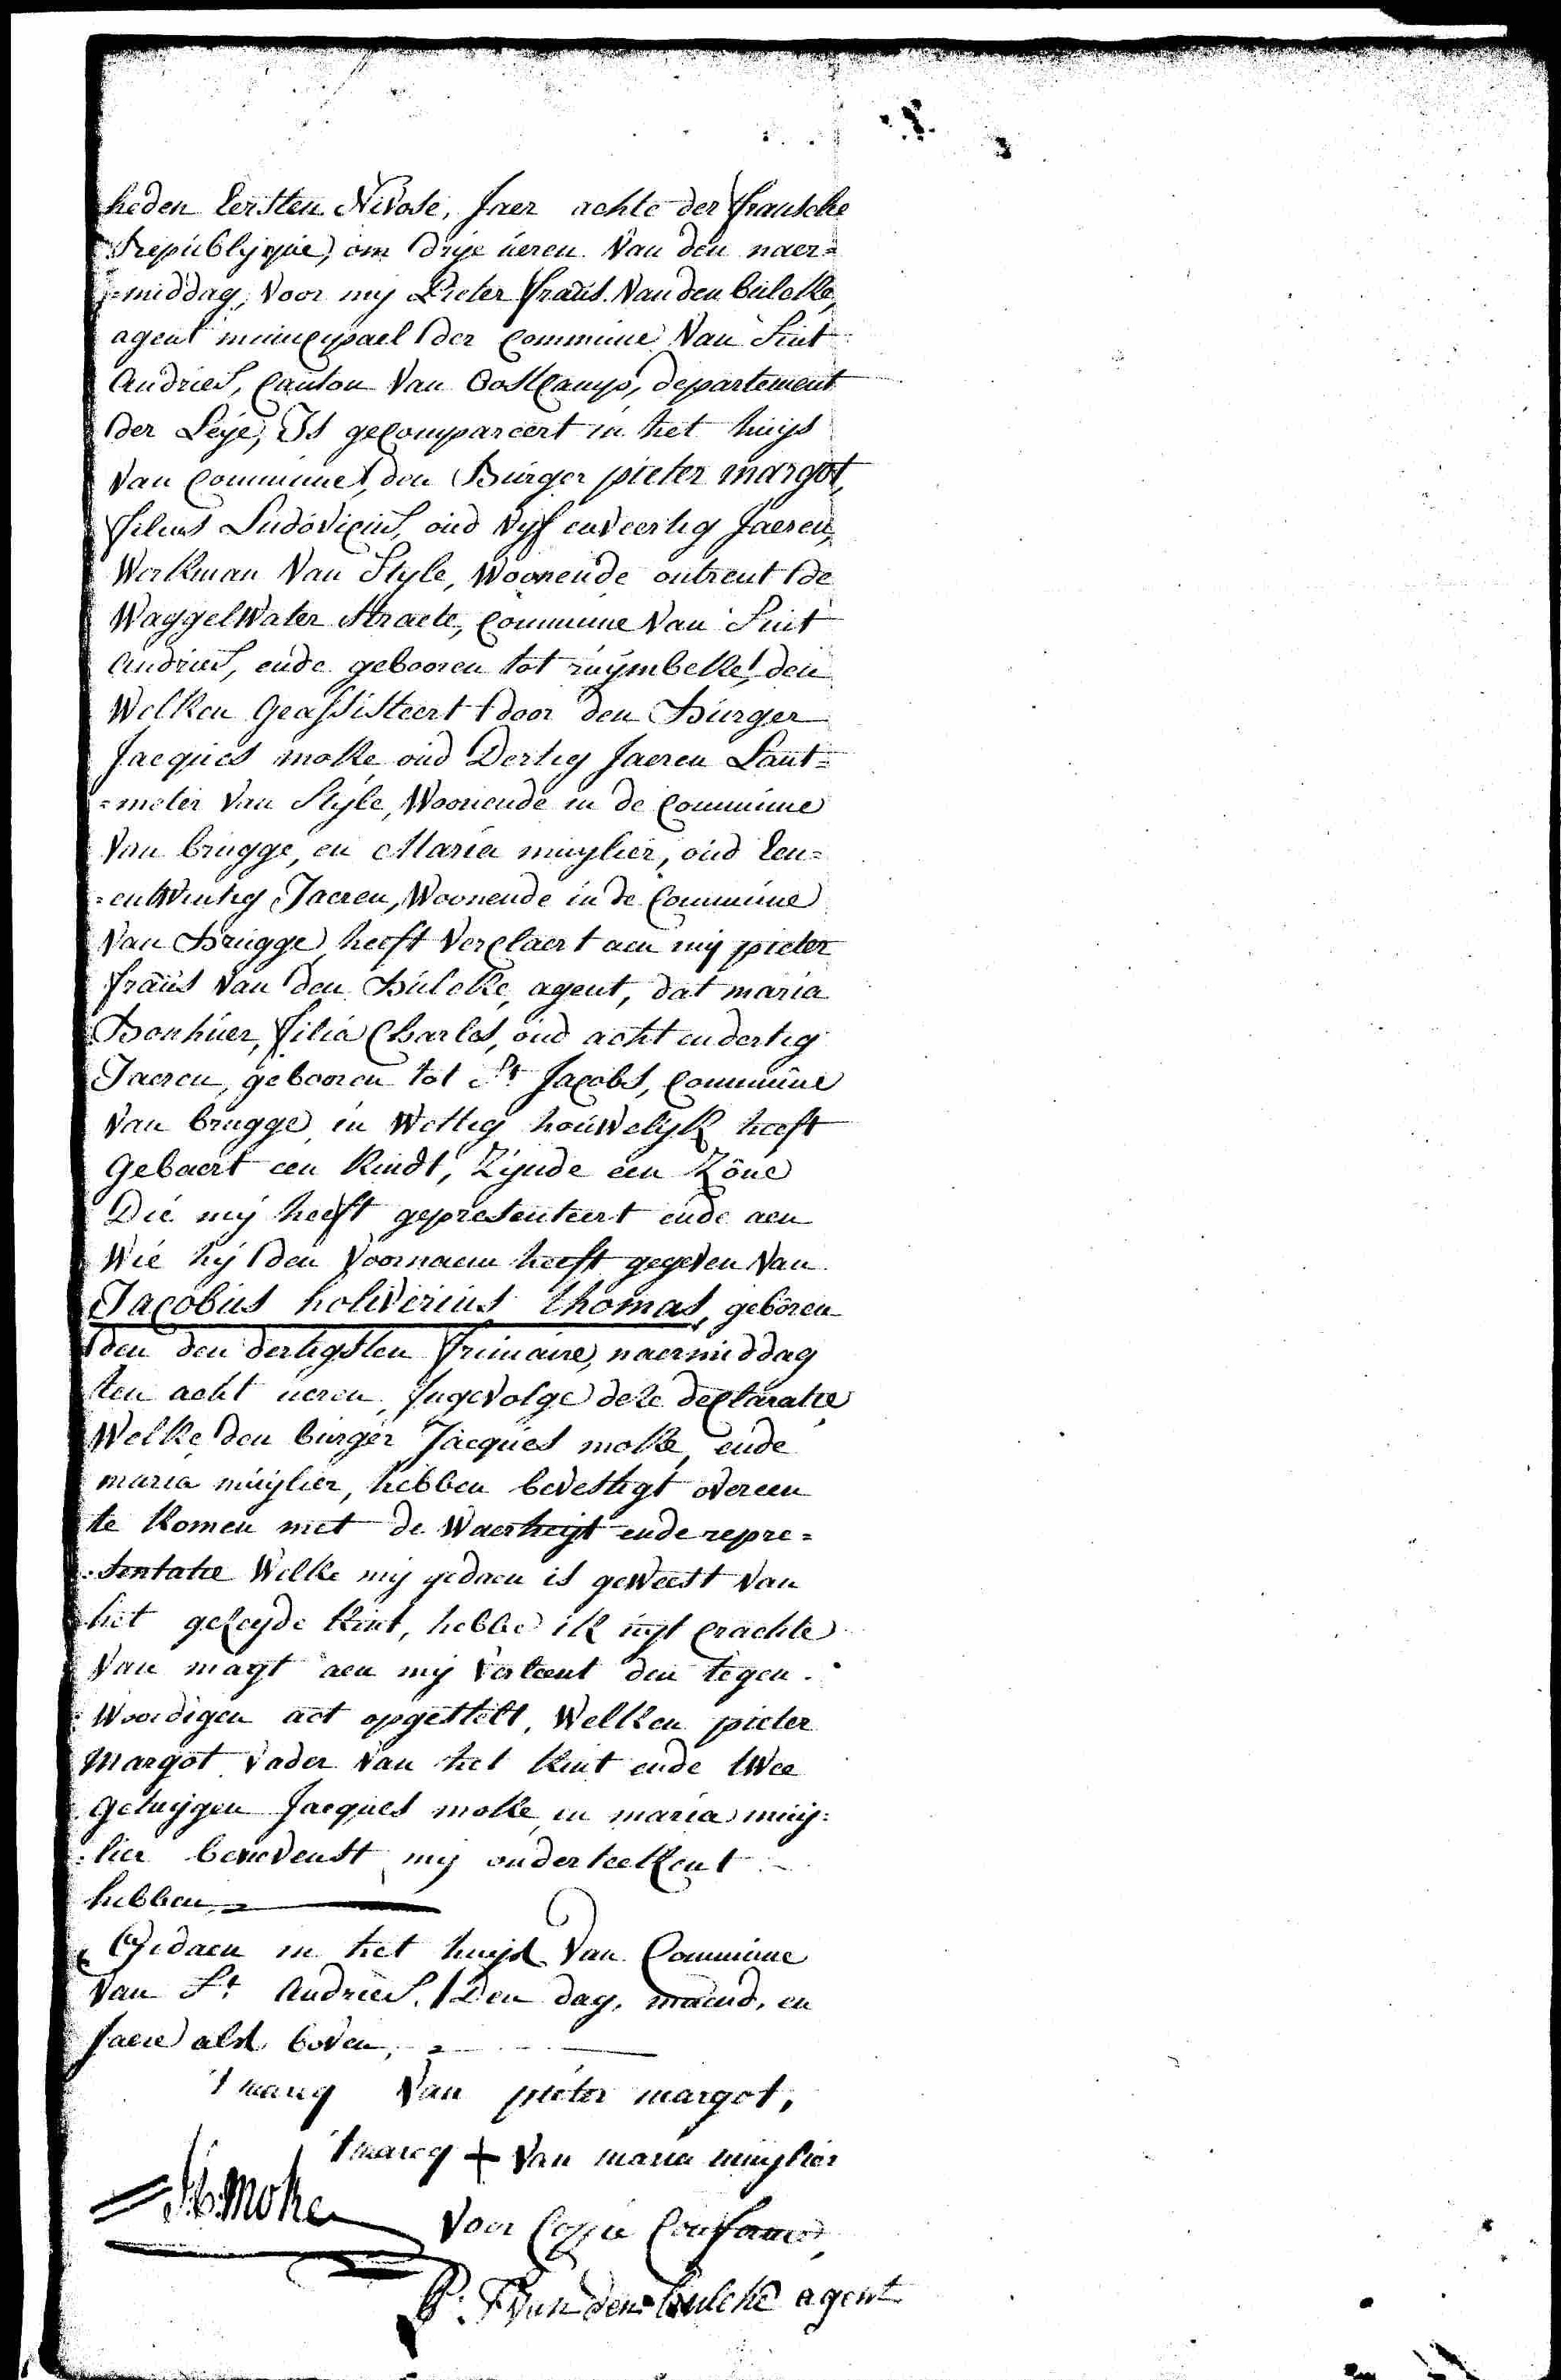 heden Eersten Nivose, Jaer achte der fransche
Republijque, om drije ueren van den naer=
=middag, voor mij Pieter frans. vanden bulcke,
agent municipael der Commune van Sint
Andries, Canton van OostCamp, departement
der Leije, Is gecompareert in het huijs
van Commune, den Burger pieter margot,
filius Ludovicus, oud vijf enveertig Jaeren,
Werkman van Style, Woonende ontrent de
WaggelWater straete, Commune van Sint
Andries, ende gebooren tot ruymbeke, den
Welken Geassisteert door den Burger
Jacques moke oud Dertig Jaeren Lant=
=meter van Style, Woonende in de Commune
van brugge, en Maria muylier, oud Een=
=entwintig Jaeren, Woonende in de Commune
van Brugge, heeft verclaert aen mij pieter
frans van den Bulcke, agent, dat maria
Bonhuer, filia Charles, oud acht en dertig
Jaeren, gebooren tot St Jacobs, Commune
van brugge, in Wettig houwelijk heeft
Gebaert een Kindt, Zijnde een Zône
Die mij heeft gepresenteert ende aen
Wie hij den voornaem heeft gegeven van
Jacobus holiverius thomas, geboren
den den dertigsten frimaire, naermiddag
ten acht ueren, Ingevolge deze declaratie
Welke den burger Jacques moke, ende
maria muylier, hebben bevestigt overeen
te komen met de Waerheijt ende repre=
=sentatie Welke mij gedaen is geweest van
het gezeyde kint, hebbe ik uyt crachte
van magt aen mij verleent den tegen=
woordigen act opgestelt, Welken pieter
Margot vader van het kint ende twee
getuygen Jacques moke en maria muy=
=lier benevenst mij onderteekent
hebben,
Gedaen in het huys van Commune
van St Andries. Den dag, maend, en
Jaere als boven,
't marcq van pieter margot,
't marcq + van maria muylier
Moke
voor Copie Conforme,
P: F van den bulcke agent